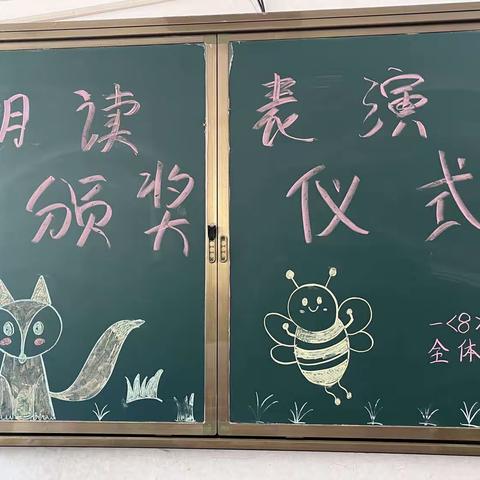 朗读表演
颁奖仪式
一<8>
全体